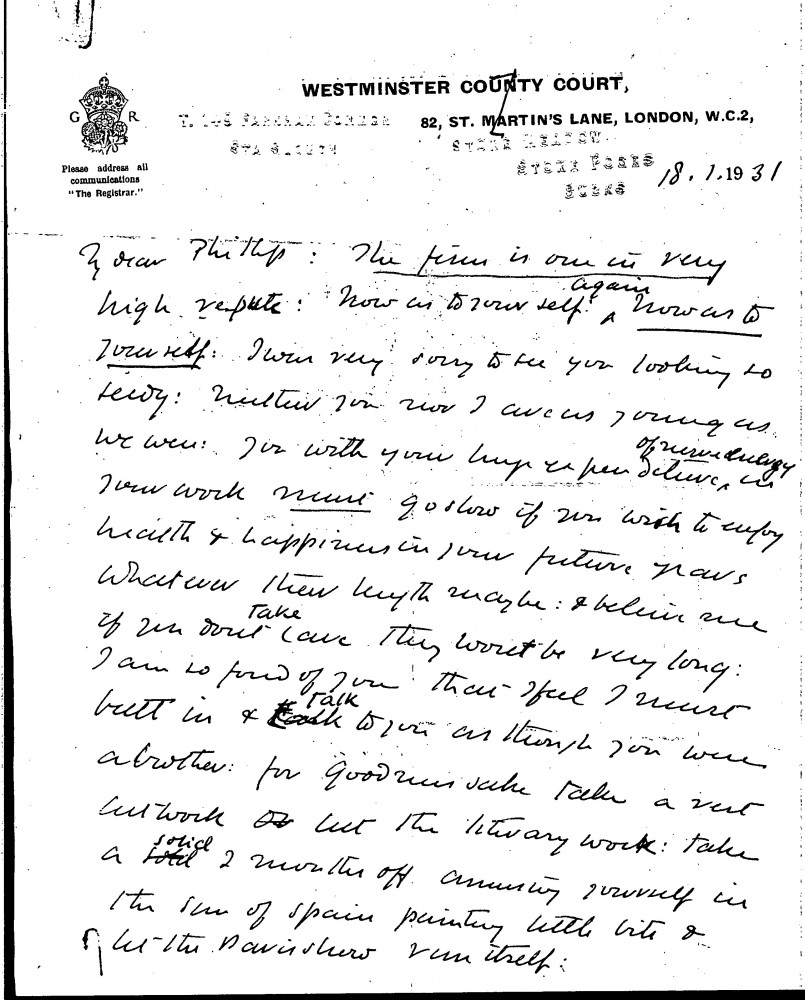 WESTMINSTER COUNTY COURT,
G R
82, ST. MARTIN'S LANE, LONDON, W.C.2,
STOKE MEADOW
STOKE POGES
BUCKS
Please address all
communications
"The Registrar."
18. 1. 1931
My dear Phillip : The firm is one in very
high repute : Now as to yourself : again Now as to
yourself : I was very sorry to see you looking so
seedy : Neither you nor I are as young as
we were : You with your huge expenditure of nerve energy in
your work must go slow if you wish to enjoy
health & happiness in your future years
whatever their length maybe : & believe me
if you dont take care they wont be very long :
I am so fond of you that I feel I must
butt in & talk to you as though you were
a brother : for goodness sake take a rest
cut work let the literary work : take
a solid 2 months off amusing yourself in
the sun of Spain painting little bits &
let the run itself :